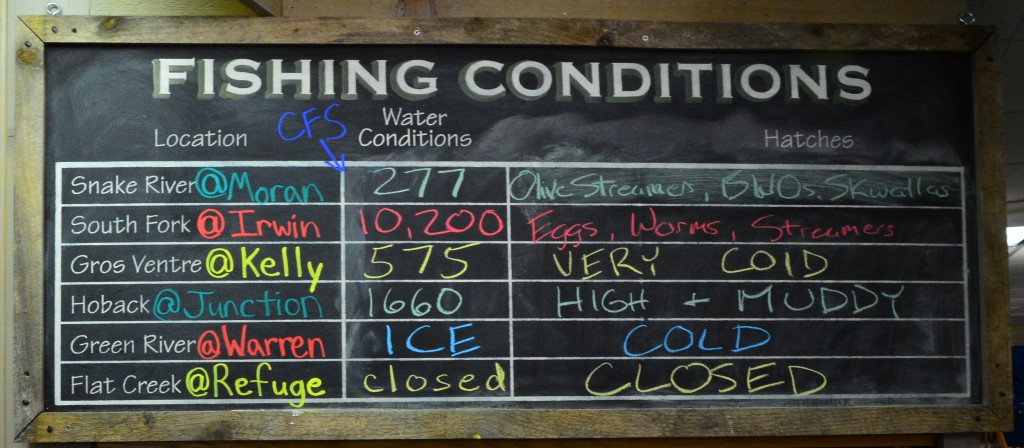 FISHING CONDITIONS
Location CFS Water Conditions Hatches
Snake River @Moran 277 Olive Streamers, BWOs, Skwallas
South Fork @Irwin 10,200 Eggs, Worms, Streamers
Gros Ventre @Kelly 575 VERY COlD
Hoback @Junction 1660 HIGH + MUDDY
Green River @Warren ICE COLD
Flat Creek @Refuge closed CLOSED